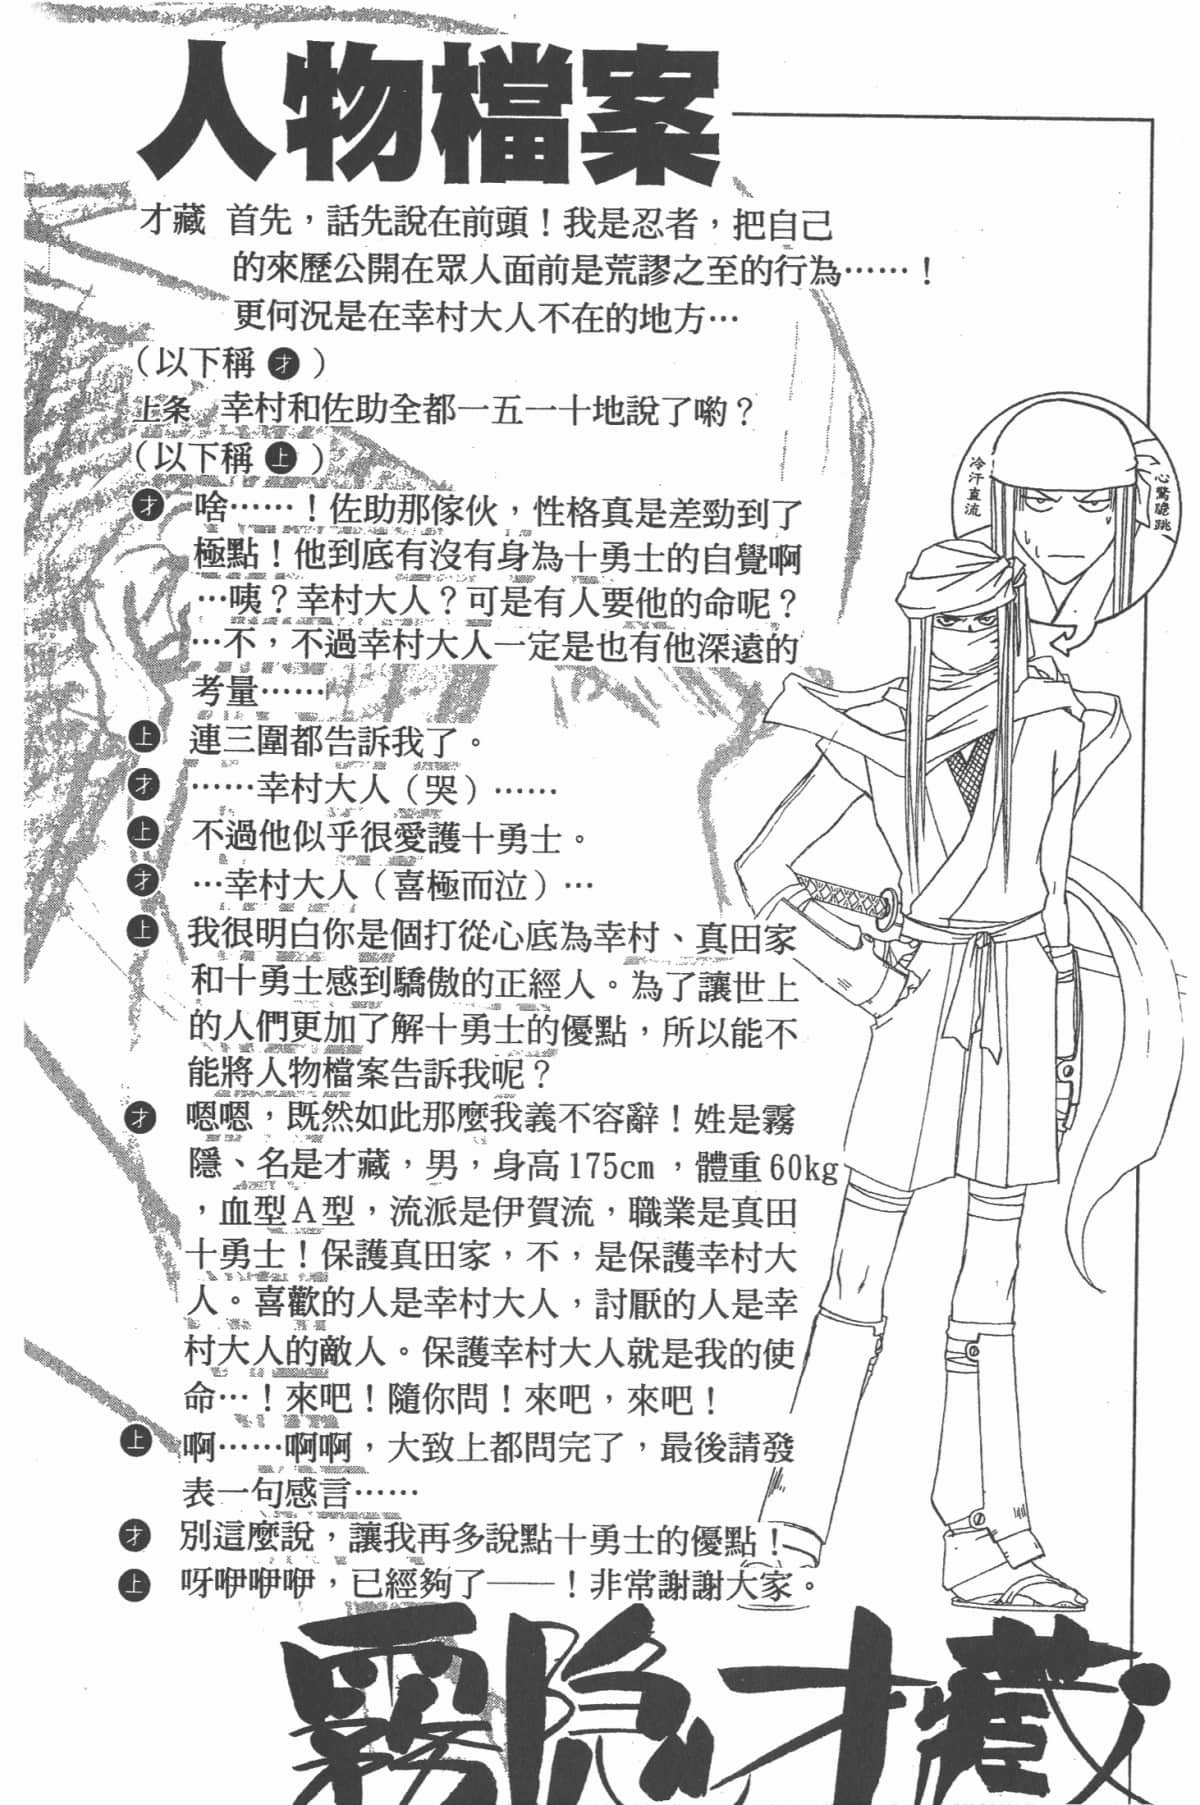 人物檔案
才藏 首先，話先說在前頭！我是忍者，把自己
的來歷公開在眾人面前是荒謬之至的行為……！
更何況是在幸村大人不在的地方…
（以下稱 才 ）
上条 幸村和佐助全都一五一十地說了喲？
（以下稱 上 ）
才 啥……！佐助那傢伙，性格真是差勁到了
極點！他到底有沒有身為十勇士的自覺啊
…咦？幸村大人？可是有人要他的命呢？
…不，不過幸村大人一定是也有他深遠的
考量……
上 連三圍都告訴我了。
才 ……幸村大人（哭）……
上 不過他似乎很愛護十勇士。
才 …幸村大人（喜極而泣）…
上 我很明白你是個打從心底為幸村、真田家
和十勇士感到驕傲的正經人。為了讓世上
的人們更加了解十勇士的優點，所以能不
能將人物檔案告訴我呢？
才 嗯嗯，既然如此那麼我義不容辭！姓是霧
隱、名是才藏，男，身高175cm，體重60kg
，血型Ａ型，流派是伊賀流，職業是真田
十勇士！保護真田家，不，是保護幸村大
人。喜歡的人是幸村大人，討厭的人是幸
村大人的敵人。保護幸村大人就是我的使
命…！來吧！隨你問！來吧，來吧！
上 啊……啊啊，大致上都問完了，最後請發
表一句感言……
才 別這麼說，讓我再多說點十勇士的優點！
上 呀咿咿咿，已經夠了——！非常謝謝大家。
心驚膽跳
冷汗直流
霧隠才蔵